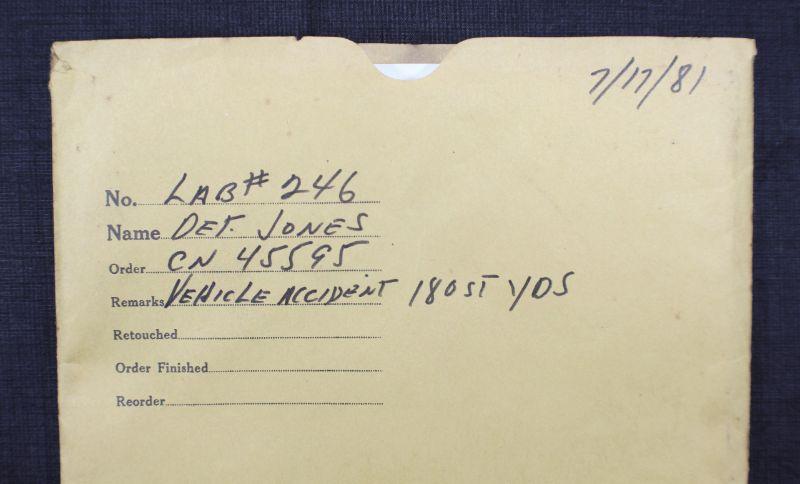 7/17/81
No. LAB# 246
Name DET. JONES
Order CN 45595
Remarks VEHICLE ACCIDENT 180 ST YDS
Retouched
Order Finished
Reorder